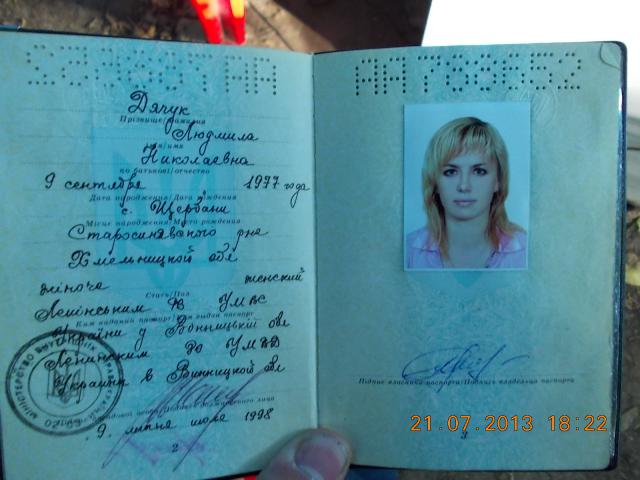 АА 7
Дячук
Прізвище/Фамилия
Людмила
Николаевна
по батькові/отчество
9 сентября 1977 года
Дата народження/Дата рождения
с. Щербани
Місце народження/Место рождения
Старосинявского р-на
Хмельницкой обл
жіноча женский
Стать/Пол
Ленінським РВ УМВС
Ким виданий паспорт/Кем выдан паспорт
України у Вінницькій обл
Ленинским РО УМВД
Украины в Винницкой обл
9 1998
2
Підпис власника паспорта/Подпись владельца паспорта
3
21.07.2013 18:22